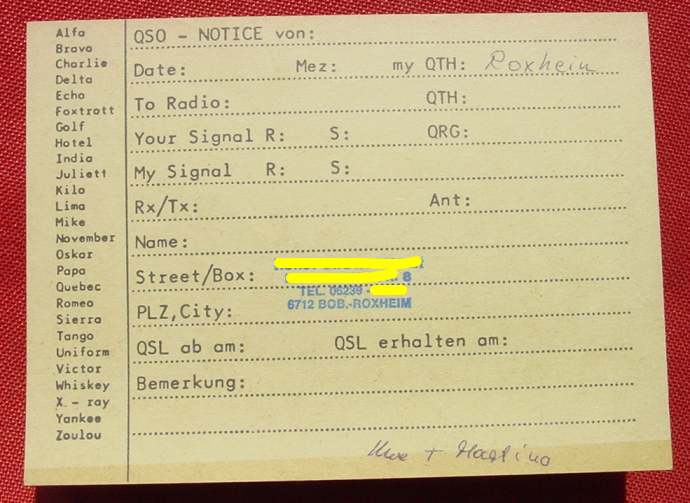 Alfa
Bravo
Charlie
Delta
Echo
Foxtrott
Golf
Hotel
India
Juliett
Kilo
Lima
Mike
November
Oskar
Papa
Quebec
Romeo
Sierra
Tango
Uniform
Victor
Whiskey
X.- ray
Yankee
Zoulou
QSO - NOTICE von:
Date: Mez: my QTH: Roxheim
To Radio: QTH:
Your Signal R: S: QRG:
My Signal R: S:
Rx/Tx: Ant:
Name:
Street/Box:
8
TEL. 06239 -
6712 BOB.-ROXHEIM
PLZ,City:
QSL ab am: QSL erhalten am:
Bemerkung:
Uwe +